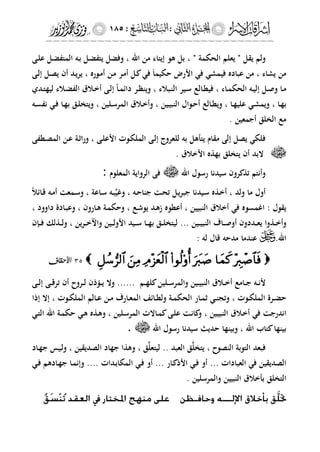 ولم يقل " يعلم الحكمة " ، بل هو إيتاء من الله ، وفضل يتفضل به المتفضل على
من يشاء ، من عباده فيمشي في الأرض حكيماً في كل أمر من أموره ، يريد أن يصل إلى
ما وصل إليه الحكماء ، فيطالع سير النبلاء ، وينظر دائماً إلى أخلاق الفضلاء ليهتدي
بها ، ويمشي عليها ، ويطالع أحوال النبيين ، وأخلاق المرسلين ، ويتخلق بها في نفسه
مع الخلق أجمعين .
فلكي يصل إلى مقام يتأهل به للعروج إلى الملكوت الأعلى ، وراثة عن المصطفى
لابد أن يتخلق بهذه الأخلاق .
وأنتم تذكرون سيدنا رسول الله ﷺ في الرواية المعلوم :
أول ما ولد ، أخذه سيدنا جبريل تحت جناحه ، وغيَّبه ساعة ، وسمعت أمه قائلاً
يقول : اغمسوه في أخلاق النبيين ، أعطوه زهد يوشع ، وحكمة هارون ، وعبادة داوود ،
وأخذوا يعددون أوصاف النبيين ... ليتخلق بها سيد الأولين والآخرين ، ولذلك فإن
الله عندما مدحه قال له :
﴿ فَٱصۡبِرۡ كَمَا صَبَرَ أُوْلُواْ ٱلۡعَزۡمِ مِنَ ٱلرُّسُلِ ﴾ 35 الأحقاف
لأنه جامع أخلاق النبيين والمرسلين كلهم ...... ولا يؤذن لروح أن ترقى إلى
حضرة الملكوت ، وتجتني ثمار الحكمة ولطائف المعارف من عالم الملكوت ، إلا إذا
اندرجت في أخلاق النبيين ، وكانت على كمالات المرسلين ، وهذه هي حكمة الله التي
بينها كتاب الله ، وبينها حديث سيدنا رسول الله ﷺ .
فبعد التوبة النصوح ، يتخلَّق العبد .. ليتعلَّق ، وهذا جهاد الصديقين ، وليس جهاد
الصديقين في العبادات ... أو في الأذكار ... أو في المكابدات .... وإنما جهادهم في
التخلق بأخلاق النبيين والمرسلين .